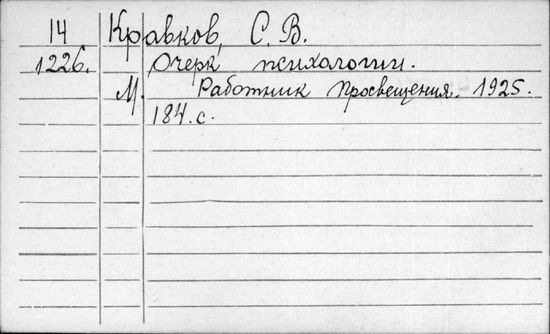 14 Кравков, С. В.
1226. Очерк психологии.
М. Работник Просвещения. 1925.
184. с.